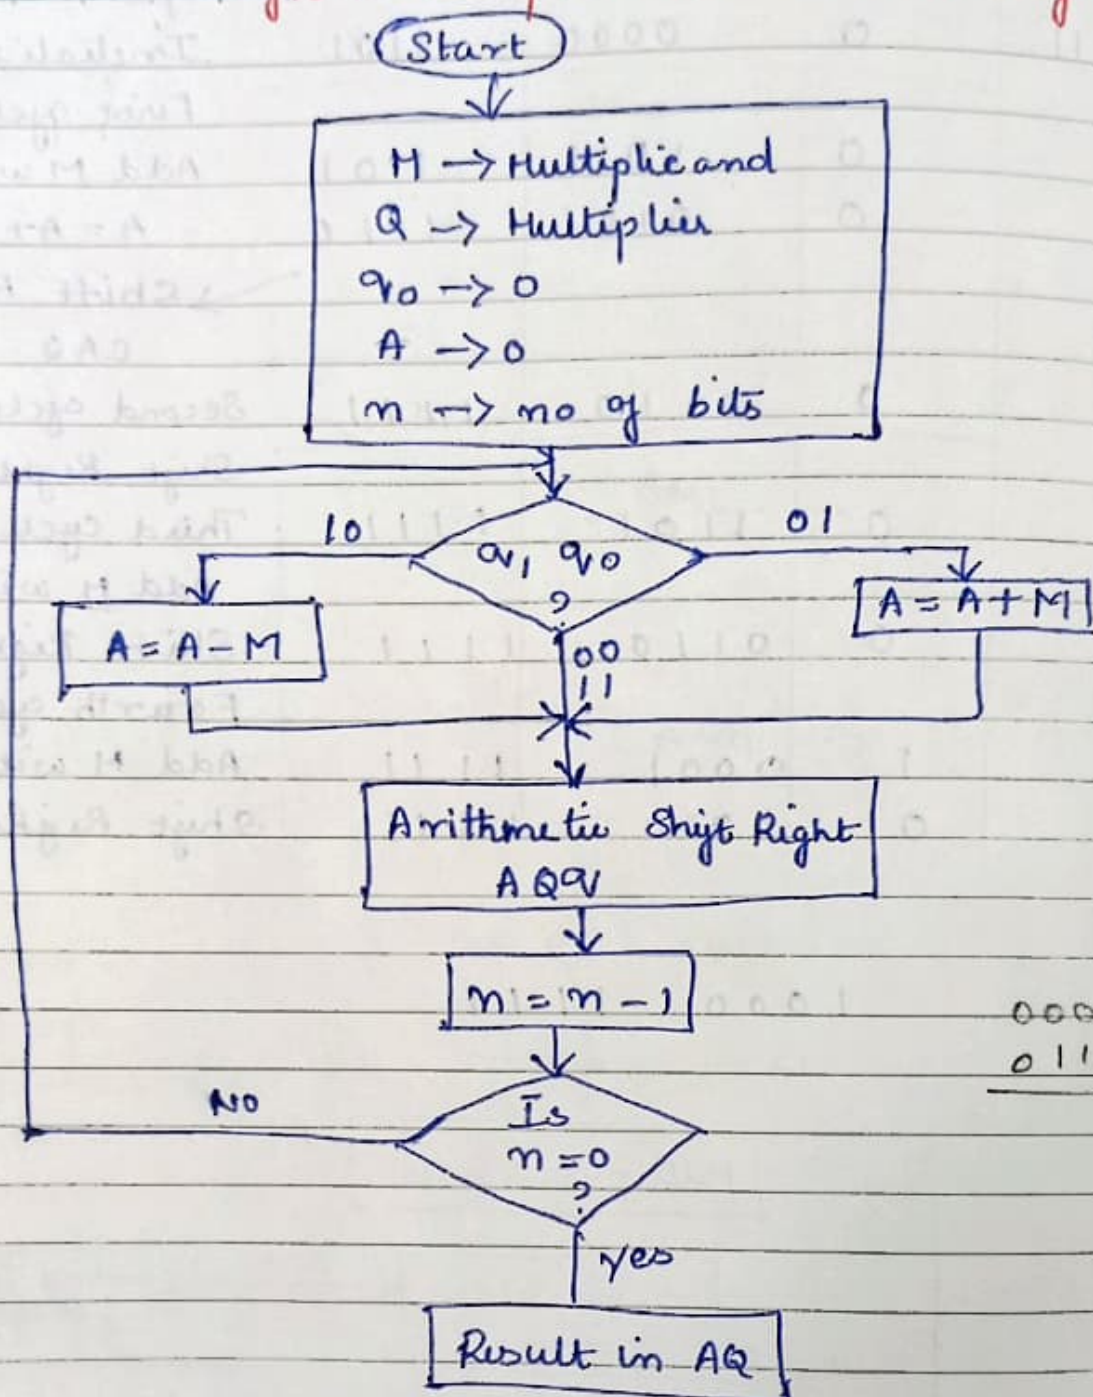 Start
M → Multiplicand
Q → Multiplier
q0 → 0
A → 0
n → no of bits
10
q1 q0
?
01
A = A - M
00
11
A = A + M
Arithmetic Shift Right
AQq
n = n - 1
000
011
Is
n = 0
?
NO
yes
Result in AQ